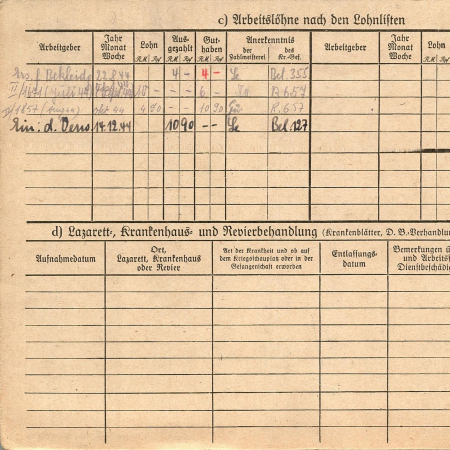 c) Arbeitslöhne nach den Lohnlisten
Arbeitgeber Jahr Monat Woche Lohn Ausgezahlt Guthaben Anerkenntnis Arbeitgeber Jahr Monat Woche Lohn
R.M. Rpf R.M. Rpf R.M. Rpf der Zahlmeisterei des Kr.-Gef. R.M. Rpf
22.8.44 4 - 4 - Le Bel 355
II/ - - - 6 - R 657
1857 44 4 90 - - 10 90 R.657
Ein: d. 14.12.44 10 90 - - Le Bel 127
d) Lazarett-, Krankenhaus- und Revierbehandlung (Krankenblätter, D. B.-Verhandlun
Aufnahmedatum Ort, Lazarett, Krankenhaus oder Revier Art der Krankheit und ob auf dem Kriegsschauplatz oder in der Gefangenschaft erworben Entlassungsdatum Bemerkungen ü und Arbeitsf Dienstbeschädig